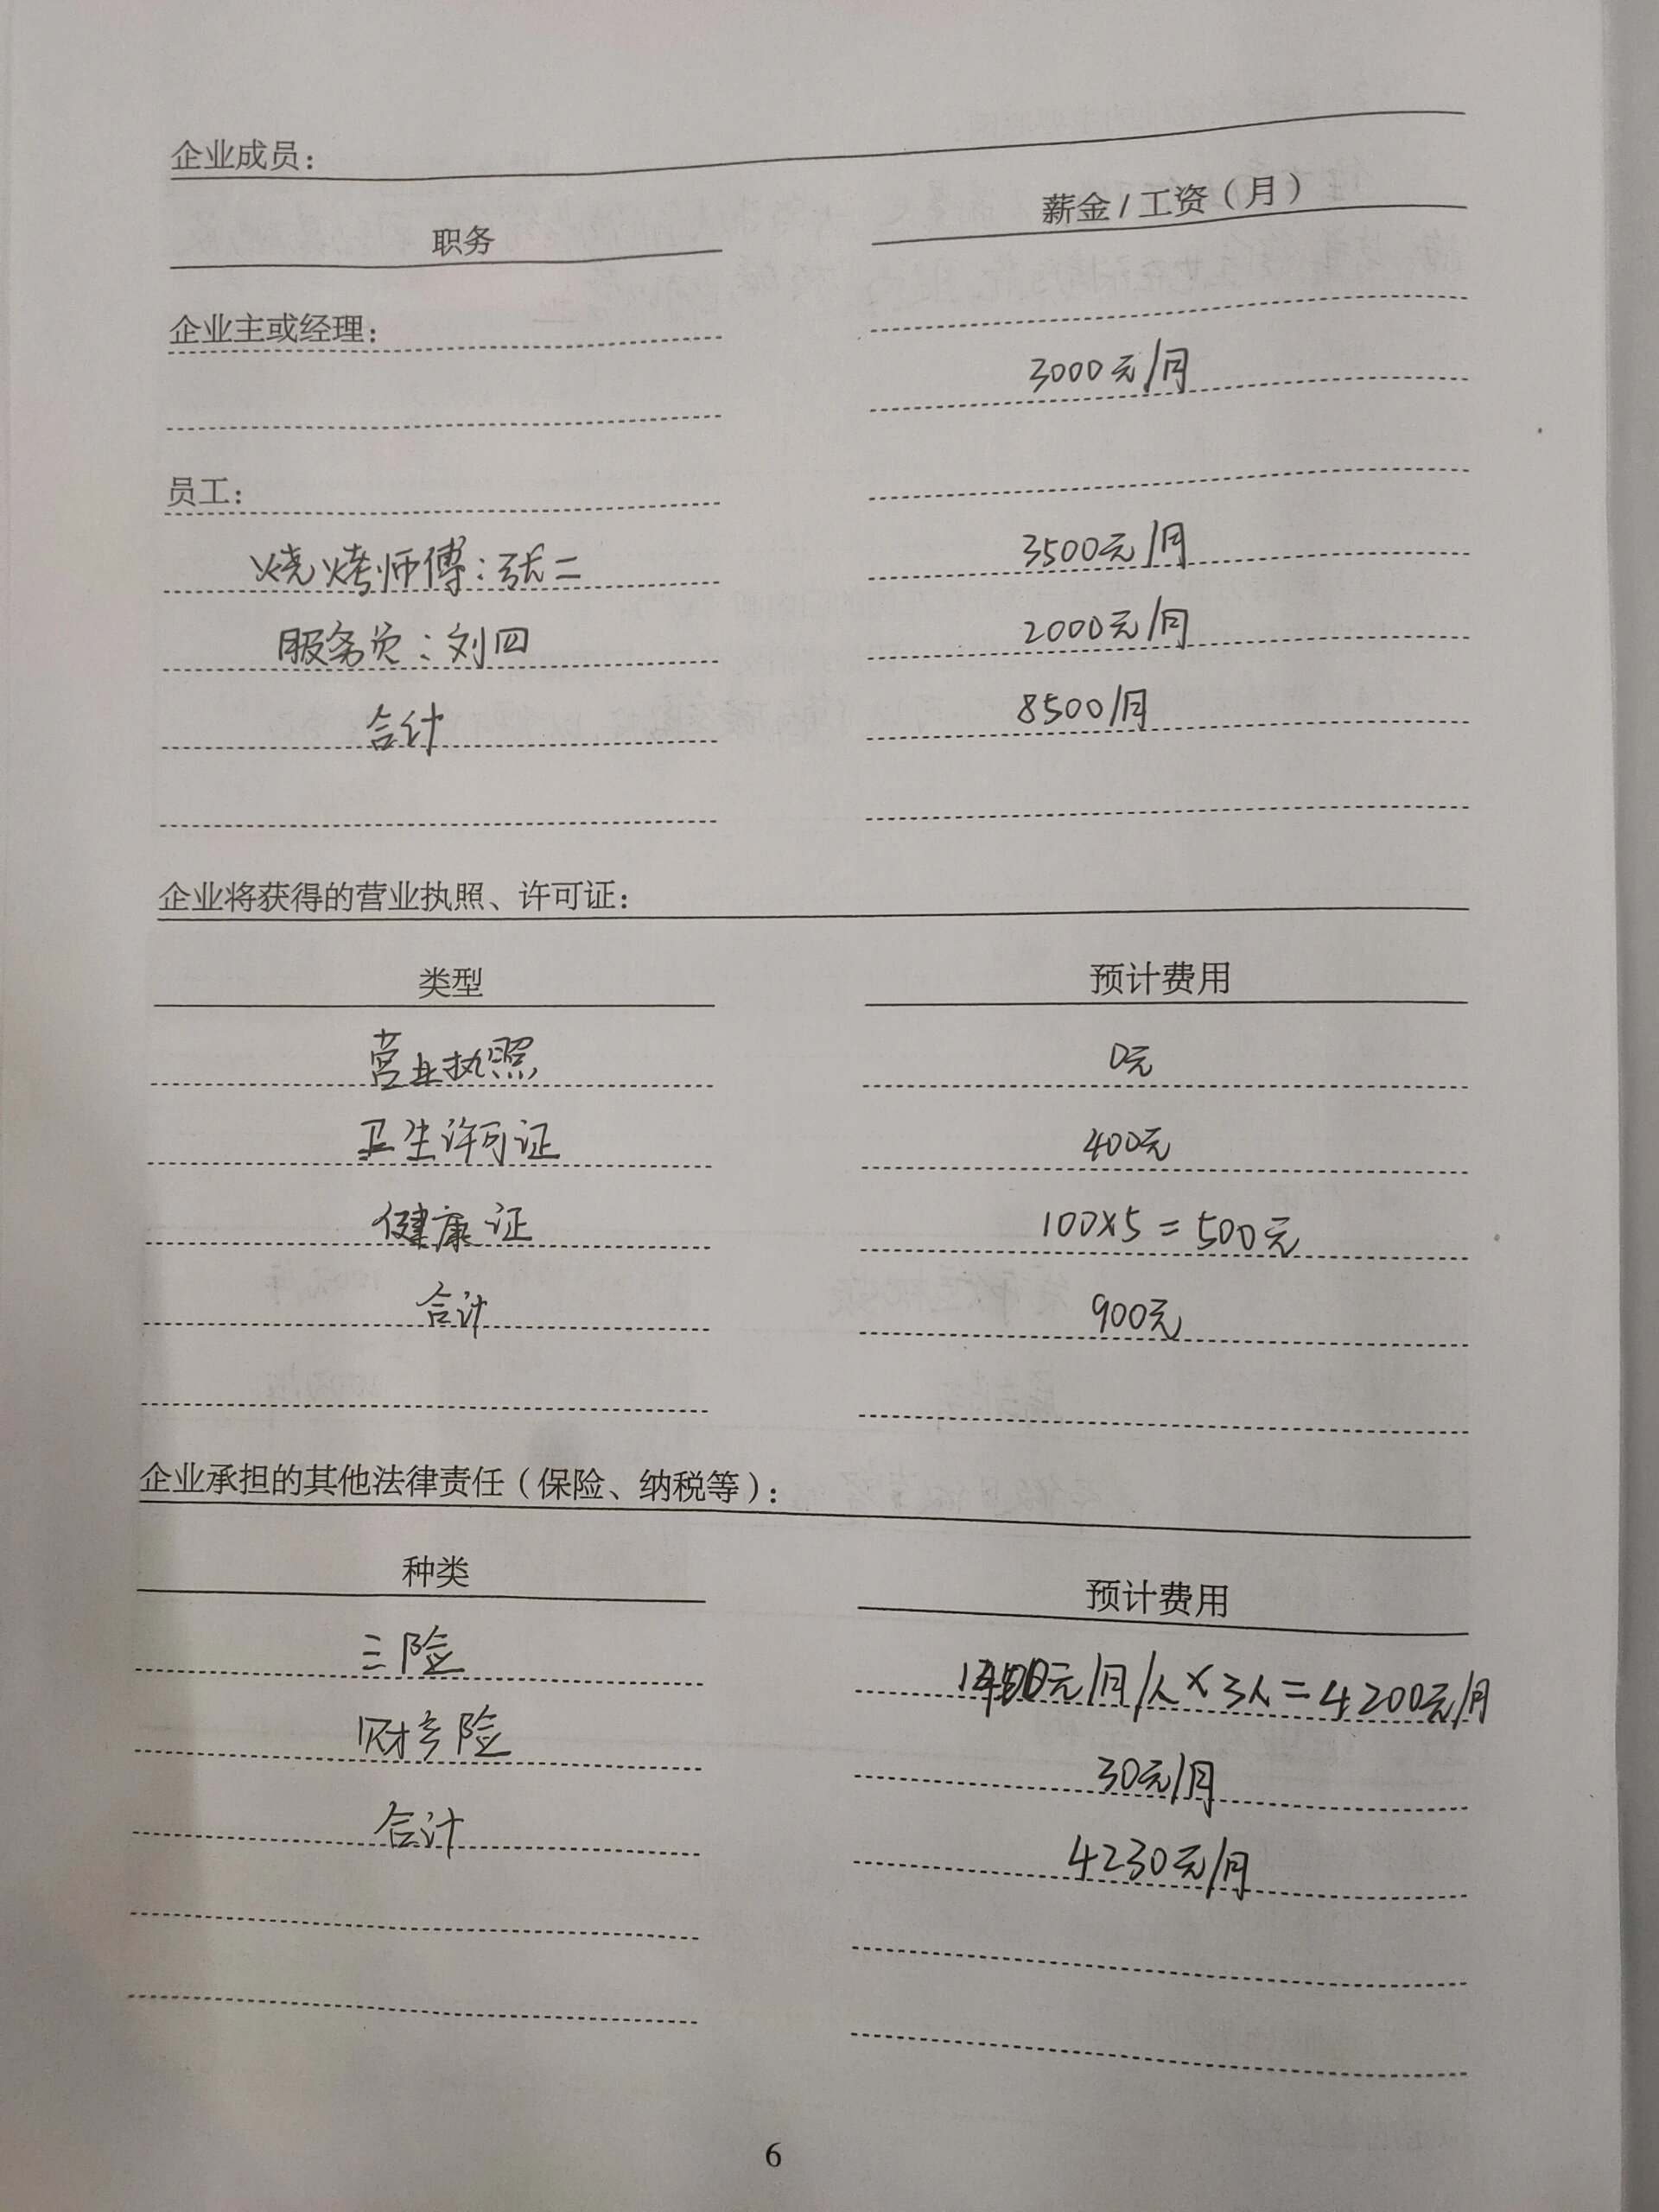 企业成员：
职务 薪金/工资（月）
企业主或经理：
3000元/月
员工：
烧烤师傅：张二 3500元/月
服务员：刘四 2000元/月
合计 8500/月
企业将获得的营业执照、许可证：
类型 预计费用
营业执照 0元
卫生许可证 400元
健康证 100×5=500元
合计 900元
企业承担的其他法律责任（保险、纳税等）：
种类 预计费用
三险 元/月/人×3人=4200元/月
财产险 30元/月
合计 4230元/月
6